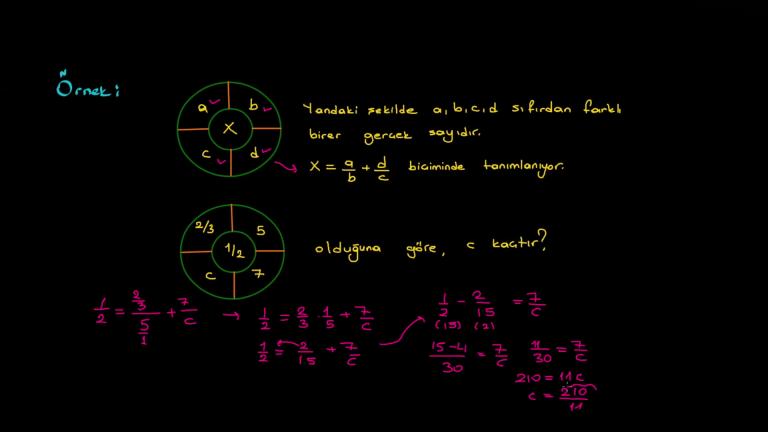 Örnek:
a b
X
c d
Yandaki şekilde a,b,c,d sıfırdan farklı
birer gerçek sayıdır.
X = a/b + d/c biçiminde tanımlanıyor.
2/3 5
1/2
c 7
olduğuna göre, c kaçtır?
1/2 = (2/3)/(5/1) + 7/c → 1/2 = 2/3 · 1/5 + 7/c
1/2 = 2/15 + 7/c
1/2 - 2/15 = 7/c
(15) (2)
15-4/30 = 7/c 11/30 = 7/c
210 = 11c
c = 210/11